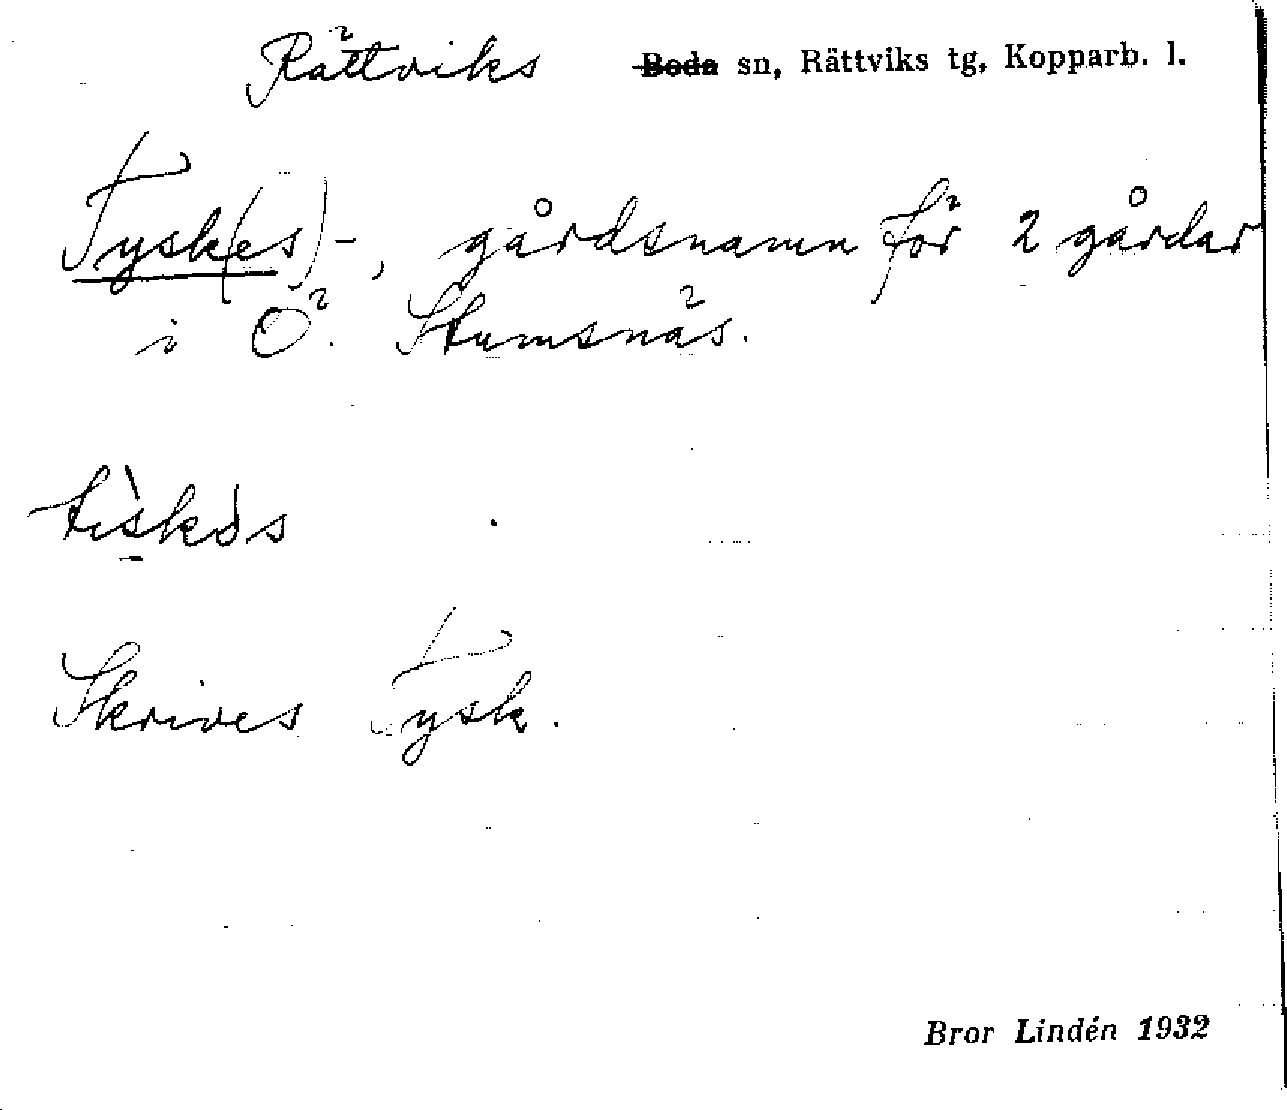 Rättviks Boda sn, Rättviks tg, Kopparb. l.
Tysk(es)-, gårdsnamn för 2 gårdar
i Ö. Stumsnäs.
tìskòs
Skrives Tysk.
Bror Lindén 1932